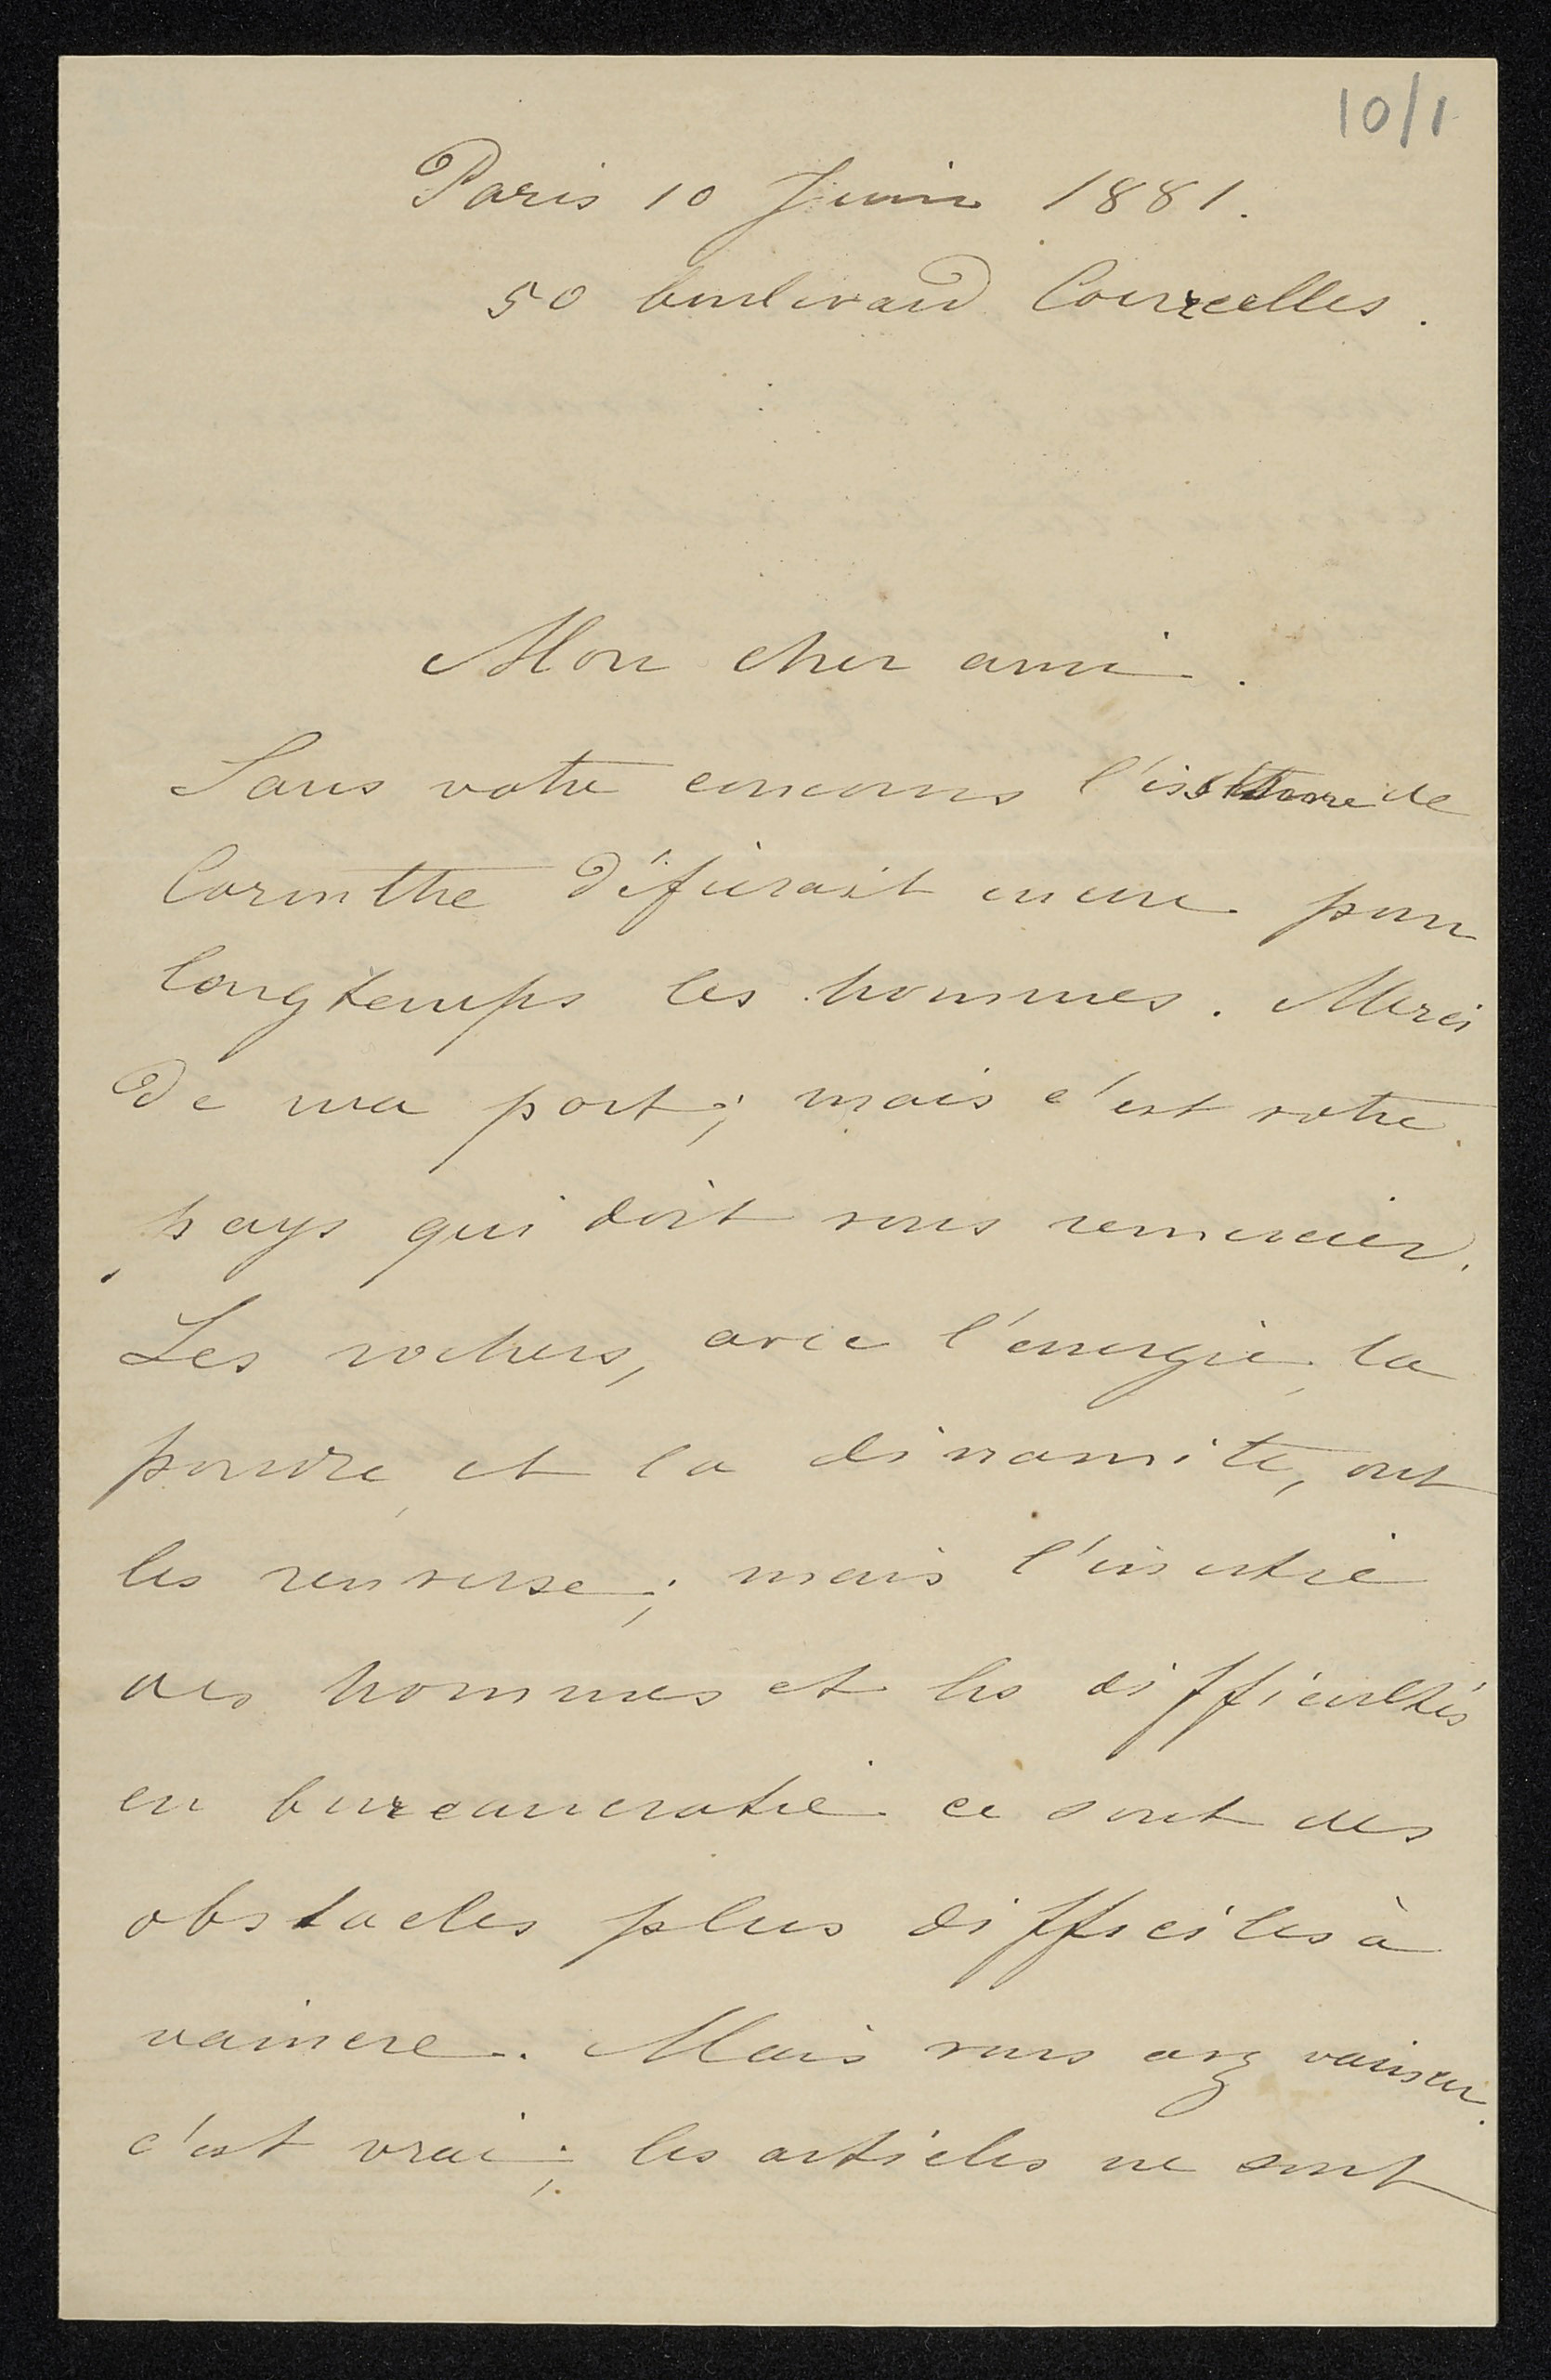 10/1
Paris 10 Juin 1881.
50 boulevard Courcelles.
Mon cher ami.
Sans votre concours de
Corinthe défierait encore pour
longtemps les hommes. Merci
de ma part; mais c'est votre
pays qui doit vous remercier.
Les rochers, avec l'energie, la
poudre, et la dinamite, ont
les renverse; mais l'inertie
des hommes et les difficultés
en bureaucratie ce sont des
obstacles plus difficiles à
vaincre. Mais vous avez vaincu
c'est vrai; les articles ne sont